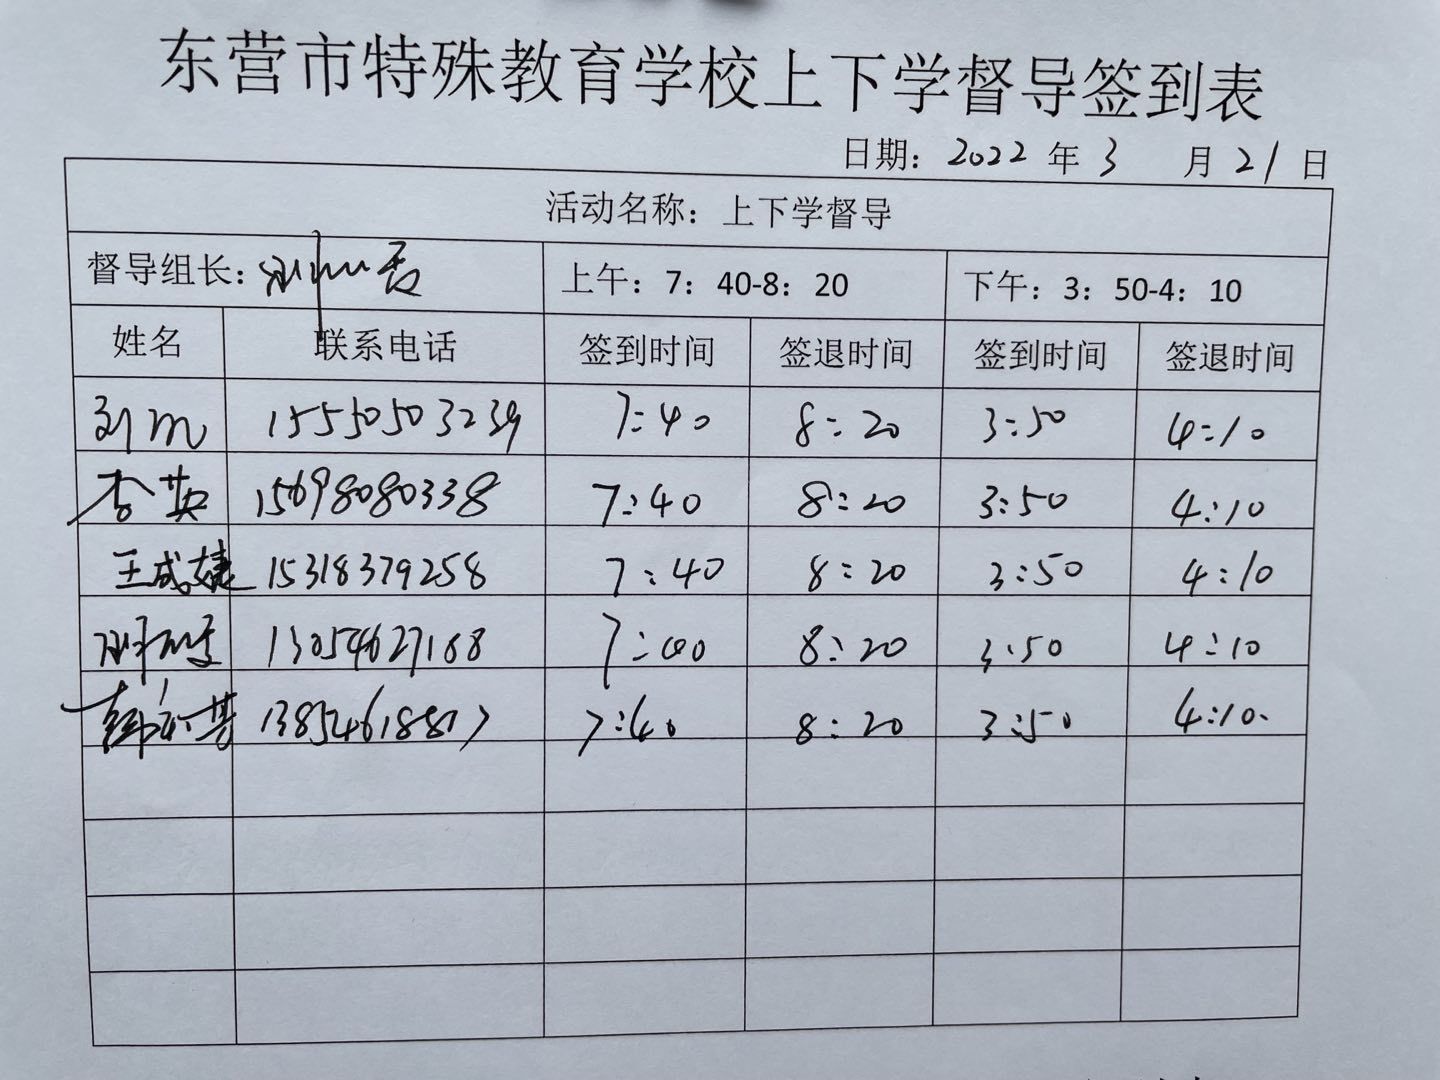 东营市特殊教育学校上下学督导签到表
日期：2022 年 3 月 21 日
活动名称：上下学督导
督导组长： 上午：7：40-8：20 下午：3：50-4：10
姓名 联系电话 签到时间 签退时间 签到时间 签退时间
15550503239 7:40 8:20 3:50 4:10
李英 15698080338 7:40 8:20 3:50 4:10
王成婕 15318379258 7:40 8:20 3:50 4:10
13054627168 7:40 8:20 3:50 4:10
7:40 8:20 3:50 4:10.